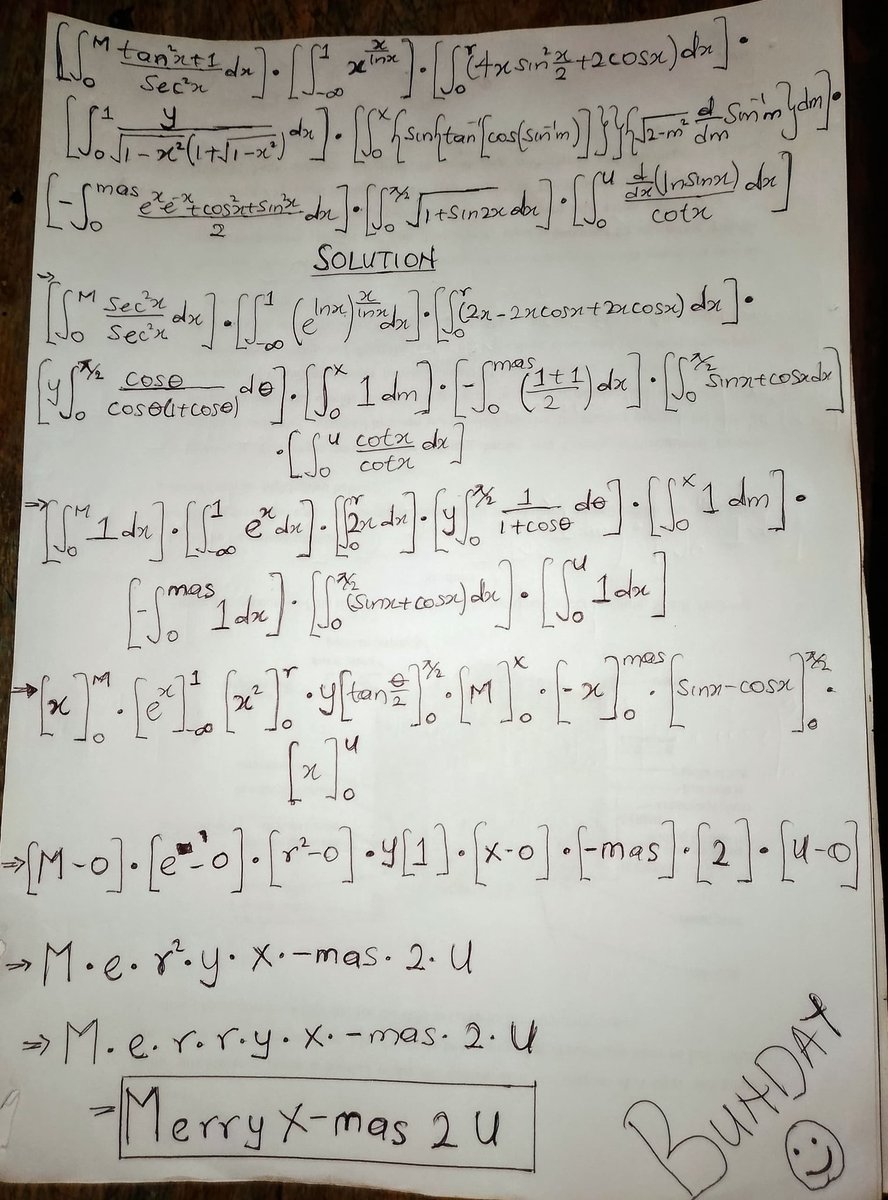 [∫₀ᴹ (tan²x+1)/(sec²x) dx]·[∫₋∞¹ x^(x/lnx)]·[∫₀ʳ(4x sin²x/2+2cosx)dx]·
[∫₀¹ y/(√1-x²(1+√1-x²)) dx]·[∫₀ˣ{sin{tan⁻¹[cos(sin⁻¹m)]}}{√2-m² d/dm sin⁻¹m}dm]·
[-∫₀ᵐᵃˢ (eˣe⁻ˣ+cos²x+sin²x)/2 dx]·[∫₀^(π/2) √1+sin2x dx]·[∫₀ᵘ (d/dx(lnsinx))/(cotx) dx]
SOLUTION
⇒[∫₀ᴹ Sec²x/Sec²x dx]·[∫₋∞¹ (e^lnx)^(x/lnx) dx]·[∫₀ʳ(2x-2xcosx+2xcosx)dx]·
[y∫₀^(π/2) cosθ/(cosθ(1+cosθ)) dθ]·[∫₀ˣ 1dm]·[-∫₀ᵐᵃˢ ((1+1)/2)dx]·[∫₀^(π/2) sinx+cosxdx]
·[∫₀ᵘ cotx/cotx dx]
⇒[∫₀ᴹ 1dx]·[∫₋∞¹ eˣdx]·[∫₀ʳ2xdx]·[y∫₀^(π/2) 1/(1+cosθ) dθ]·[∫₀ˣ 1dm]·
[-∫₀ᵐᵃˢ 1dx]·[∫₀^(π/2)(sinx+cosx)dx]·[∫₀ᵘ 1dx]
⇒[x]₀ᴹ·[eˣ]₋∞¹[x²]₀ʳ·y[tan θ/2]₀^(π/2)·[M]₀ˣ·[-x]₀ᵐᵃˢ·[sinx-cosx]₀^(π/2)·
[x]₀ᵘ
⇒[M-0]·[e¹-0]·[r²-0]·y[1]·[x-0]·[-mas]·[2]·[u-0]
⇒M·e·r²·y·X·-mas·2·U
⇒M·e·r·r·y·x·-mas·2·U
=Merry X-mas 2 U
BUNDAY